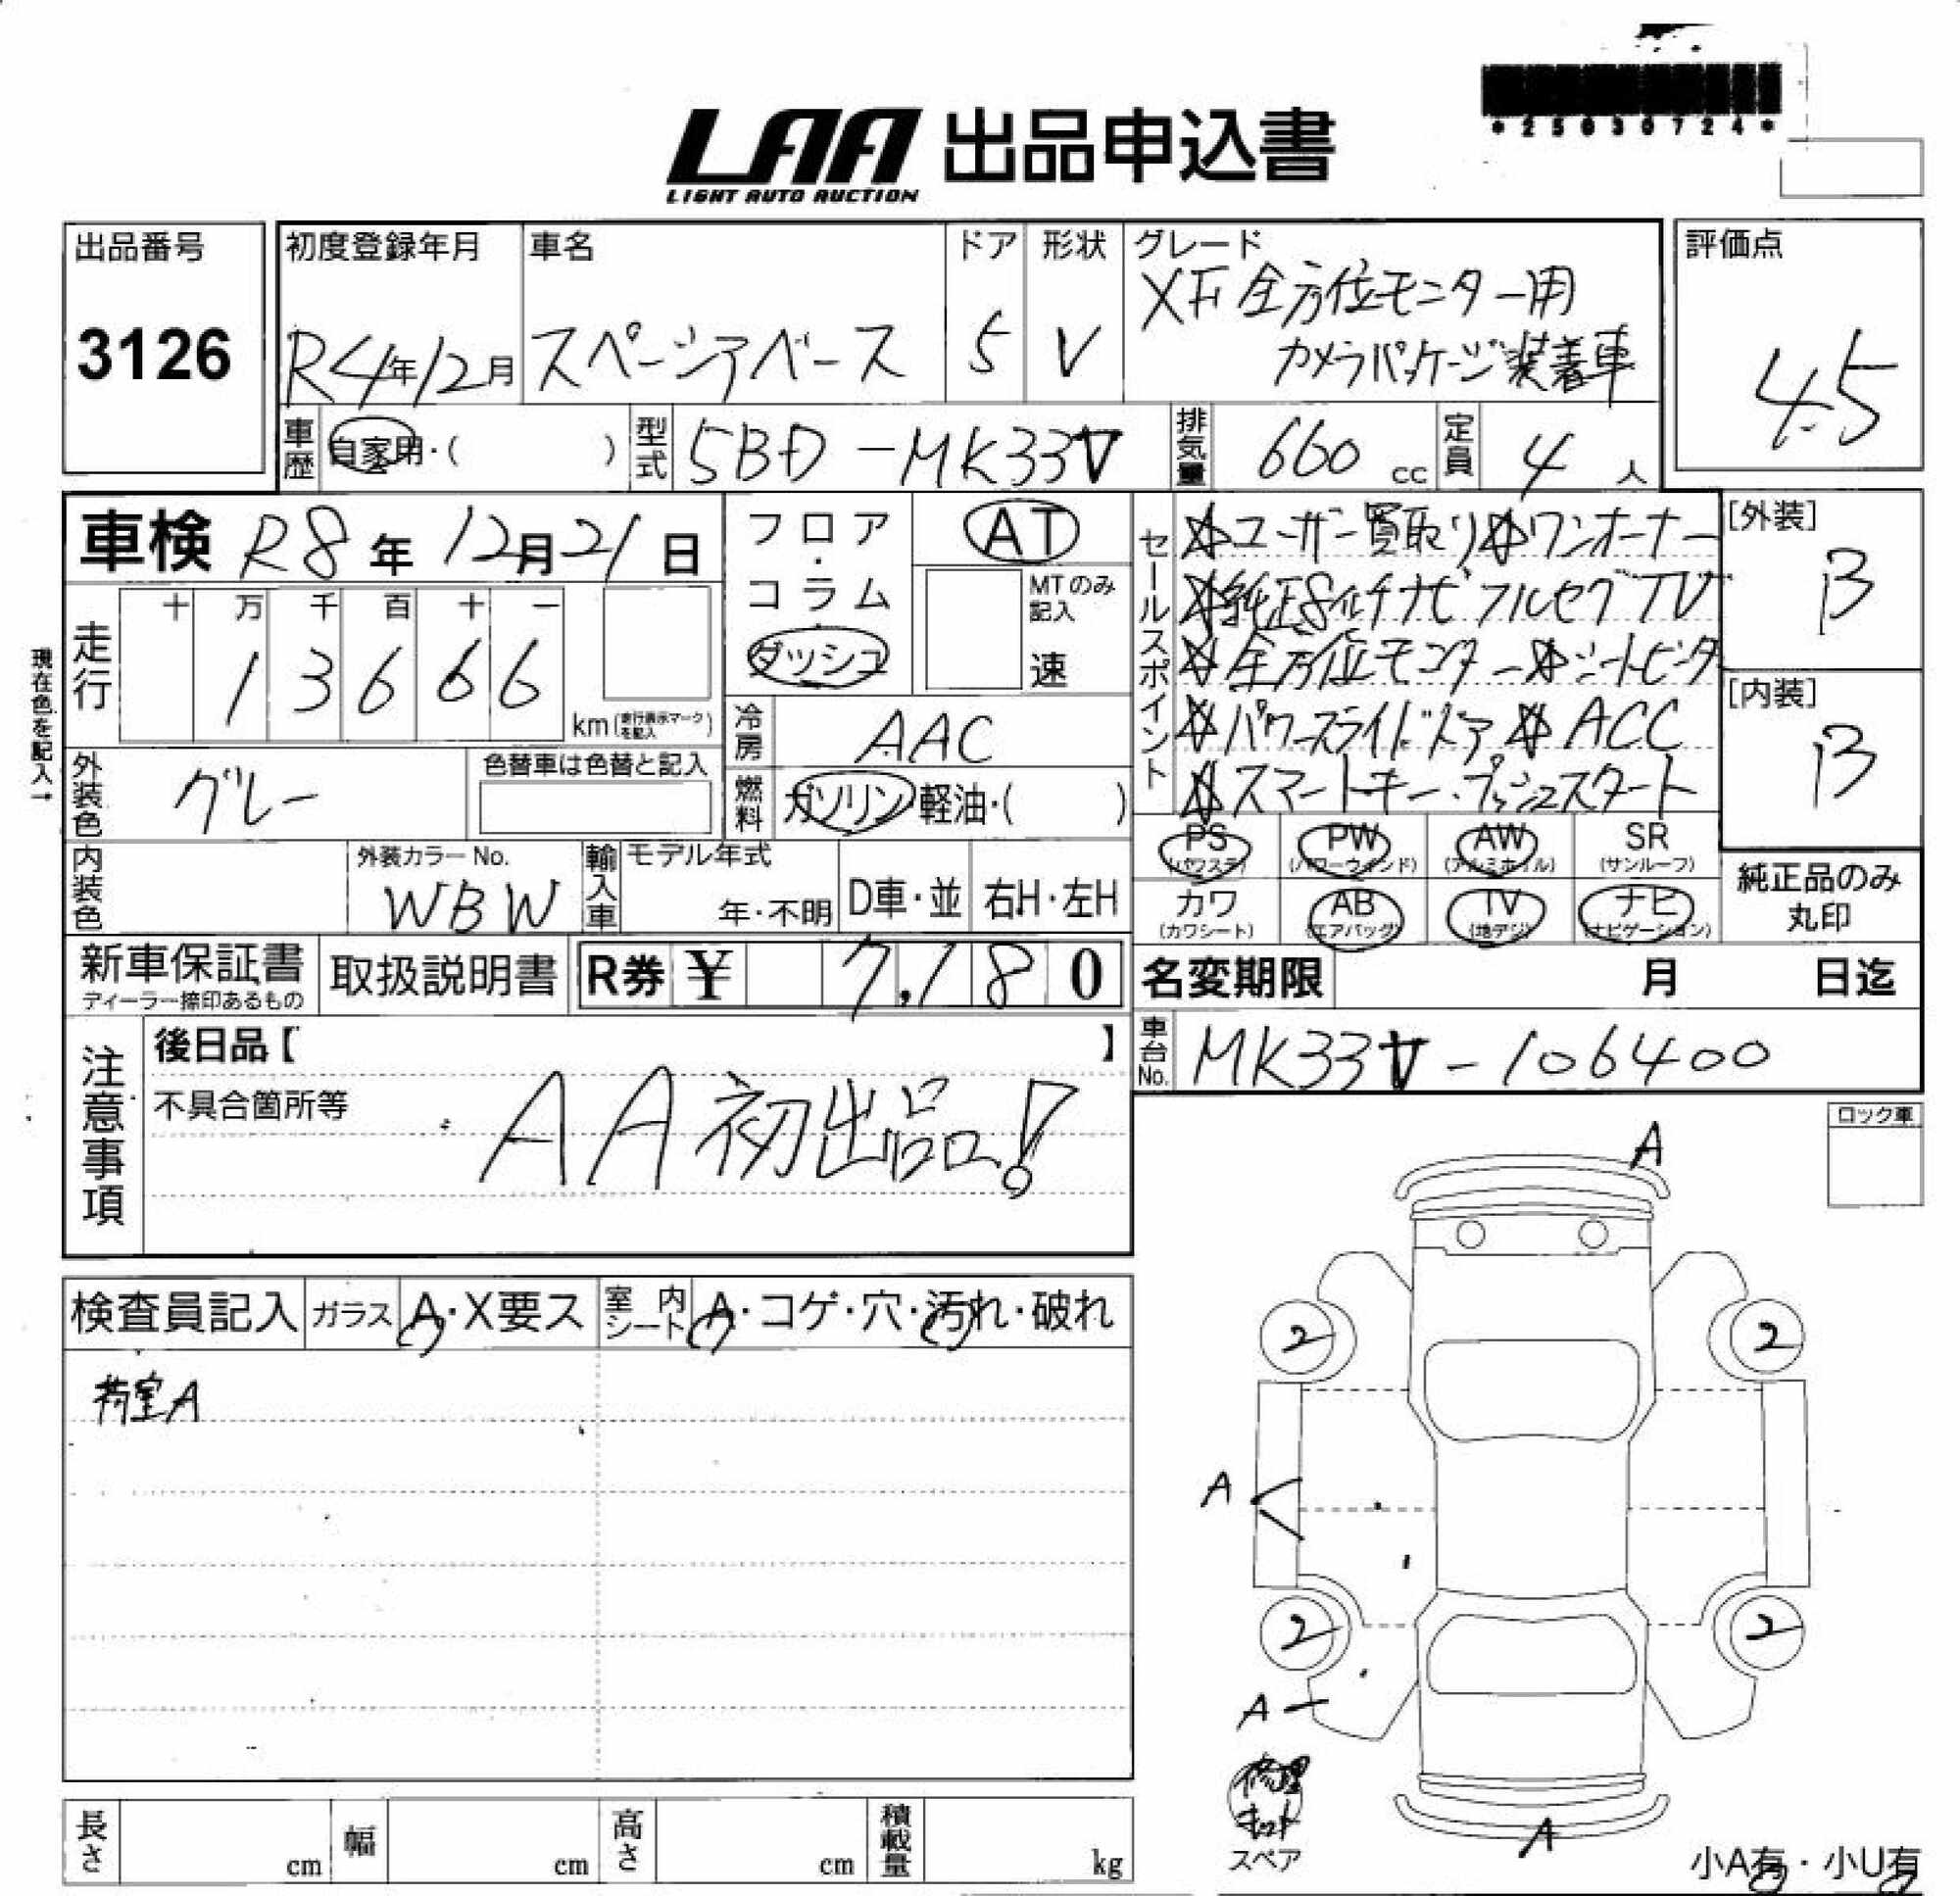 *25030724*
LAA 出品申込書
LIGHT AUTO AUCTION
出品番号
3126
初度登録年月
R4年12月
車名
スペーシアベース
ドア
5
形状
V
グレード
XF 全方位モニター用
カメラパッケージ装着車
評価点
4.5
車歴
自家用・( )
型式
5BD-MK33V
排気量
660 cc
定員
4 人
車検 R8年12月21日
現在色を記入→
走行
十 万 千 百 十 一
1 3 6 6 6
km (走行表示マークを記入)
フロア・コラム・ダッシュ
AT
MTのみ記入
速
冷房
AAC
燃料
ガソリン・軽油・( )
外装色
グレー
色替車は色替と記入
内装色
外装カラーNo.
WBW
輸入車
モデル年式
年・不明
D車・並
右H・左H
セールスポイント
☆ユーザー買取り☆ワンオーナー
☆純正8インチナビ フルセグTV
☆全方位モニター☆シートヒータ
☆パワースライドドア☆ACC
☆スマートキー・プッシュスタート
[外装]
B
[内装]
B
PS (パワステ)
PW (パワーウインド)
AW (アルミホイル)
SR (サンルーフ)
カワ (カワシート)
AB (エアバッグ)
TV (地デジ)
ナビ (ナビゲーション)
純正品のみ
丸印
新車保証書
ディーラー捺印あるもの
取扱説明書
R券 ¥ 7,180
名変期限 月 日迄
車台No.
MK33V-106400
注意事項
後日品【 】
不具合箇所等
AA初出品!
ロック車
検査員記入
ガラス A・X要ス
室内シート A・コゲ・穴・汚れ・破れ
荷室A
A
2
2
A
2
2
A
修理キット
スペア
A
小A有・小U有
長さ cm
幅 cm
高さ cm
積載量 kg